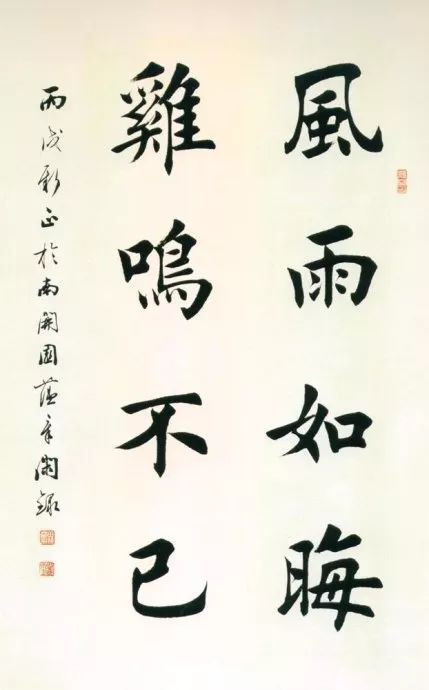 風雨如晦
雞鳴不已
丙戌新正於南開園蔭章閣錄